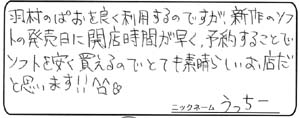 羽村のぱおを良く利用するのですが、新作のソフ
トの発売日に開店時間が早く、予約することで
ソフトを安く買えるのでとても素晴らしいお店だ
と思います!!^^
ニックネーム うっちー